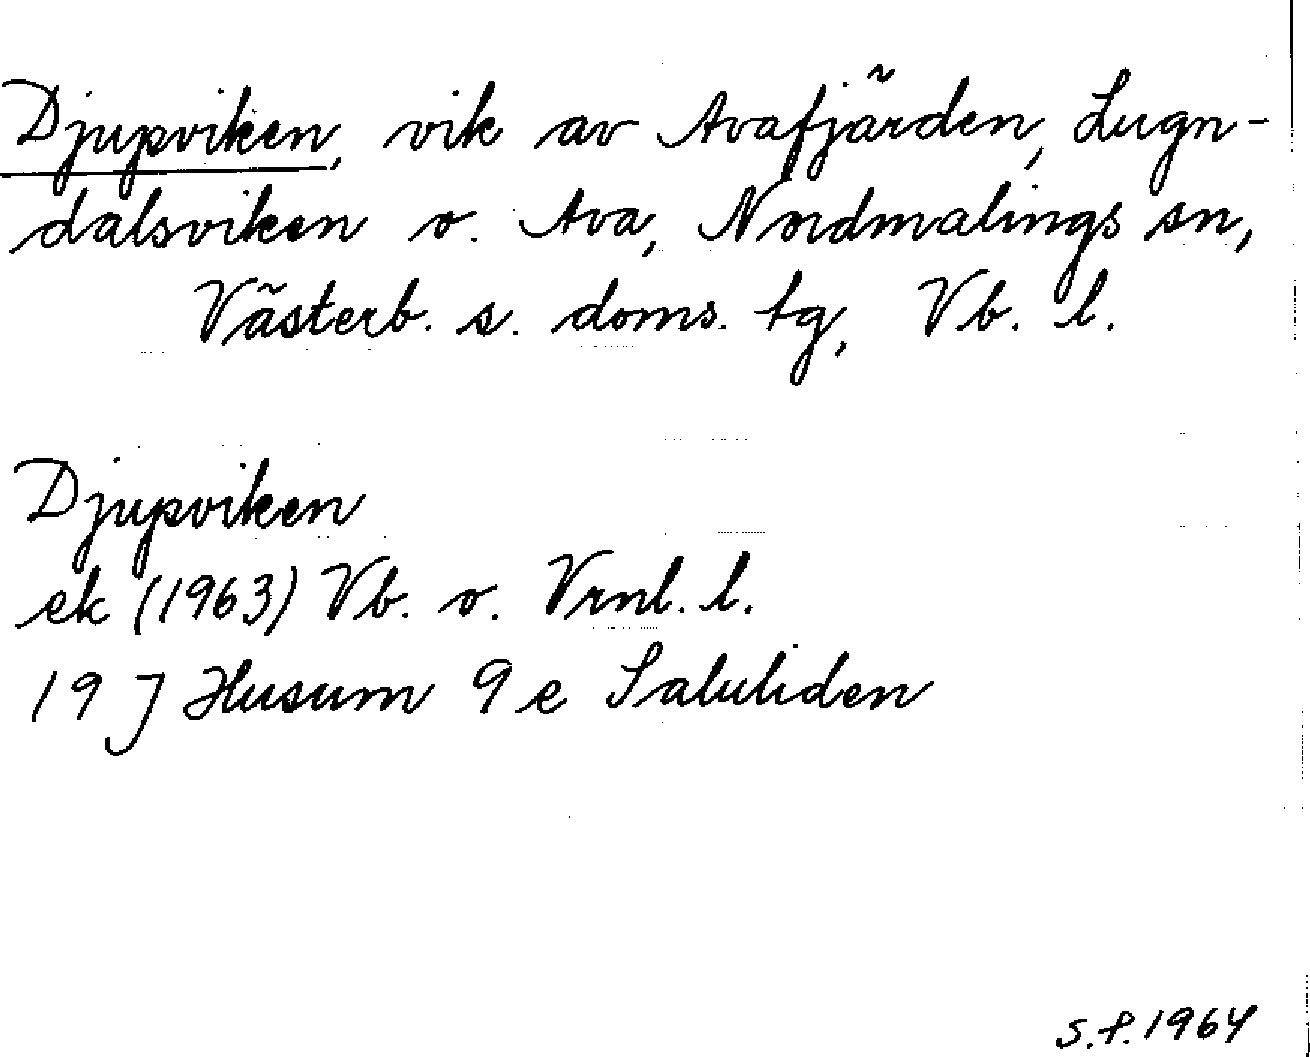 Djupviken, vik av Avafjärden, Lugn-
dalsviken o. Ava, Nordmalings sn,
Västerb. s. doms. tg, Vb. l.
Djupviken
ek (1963) Vb. o. Vrnl. l.
19 J Husum 9 e Saluliden
S.f. 1964